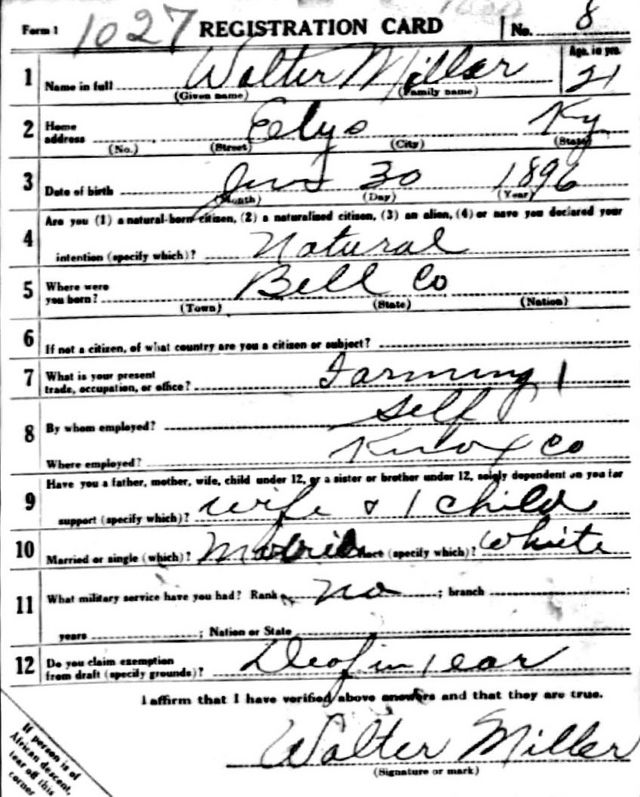 Form 1 1027 REGISTRATION CARD No. 8
1 Name in full Walter Miller Age, in yrs. 21
(Given name) (Family name)
2 Home address Elys Ky
(No.) (Street) (City) (State)
3 Date of birth 30 1896
(Month) (Day) (Year)
Are you (1) a natural-born citizen, (2) a naturalized citizen, (3) an alien, (4) or have you declared your
4 intention (specify which)? Natural
5 Where were you born? Bell Co
(Town) (State) (Nation)
6 If not a citizen, of what country are you a citizen or subject?
7 What is your present trade, occupation, or office? Farming 1
8 By whom employed? Self
Where employed? Knox Co
Have you a father, mother, wife, child under 12, or a sister or brother under 12, solely dependent on you for
9 support (specify which)? wife & 1 child
10 Married or single (which)? Married Race (specify which)? White
11 What military service have you had? Rank no ; branch ;
years ; Nation or State
12 Do you claim exemption from draft (specify grounds)? Deaf in 1 ear
I affirm that I have verified above answers and that they are true.
Walter Miller
(Signature or mark)
If person is of
African descent,
tear off this
corner